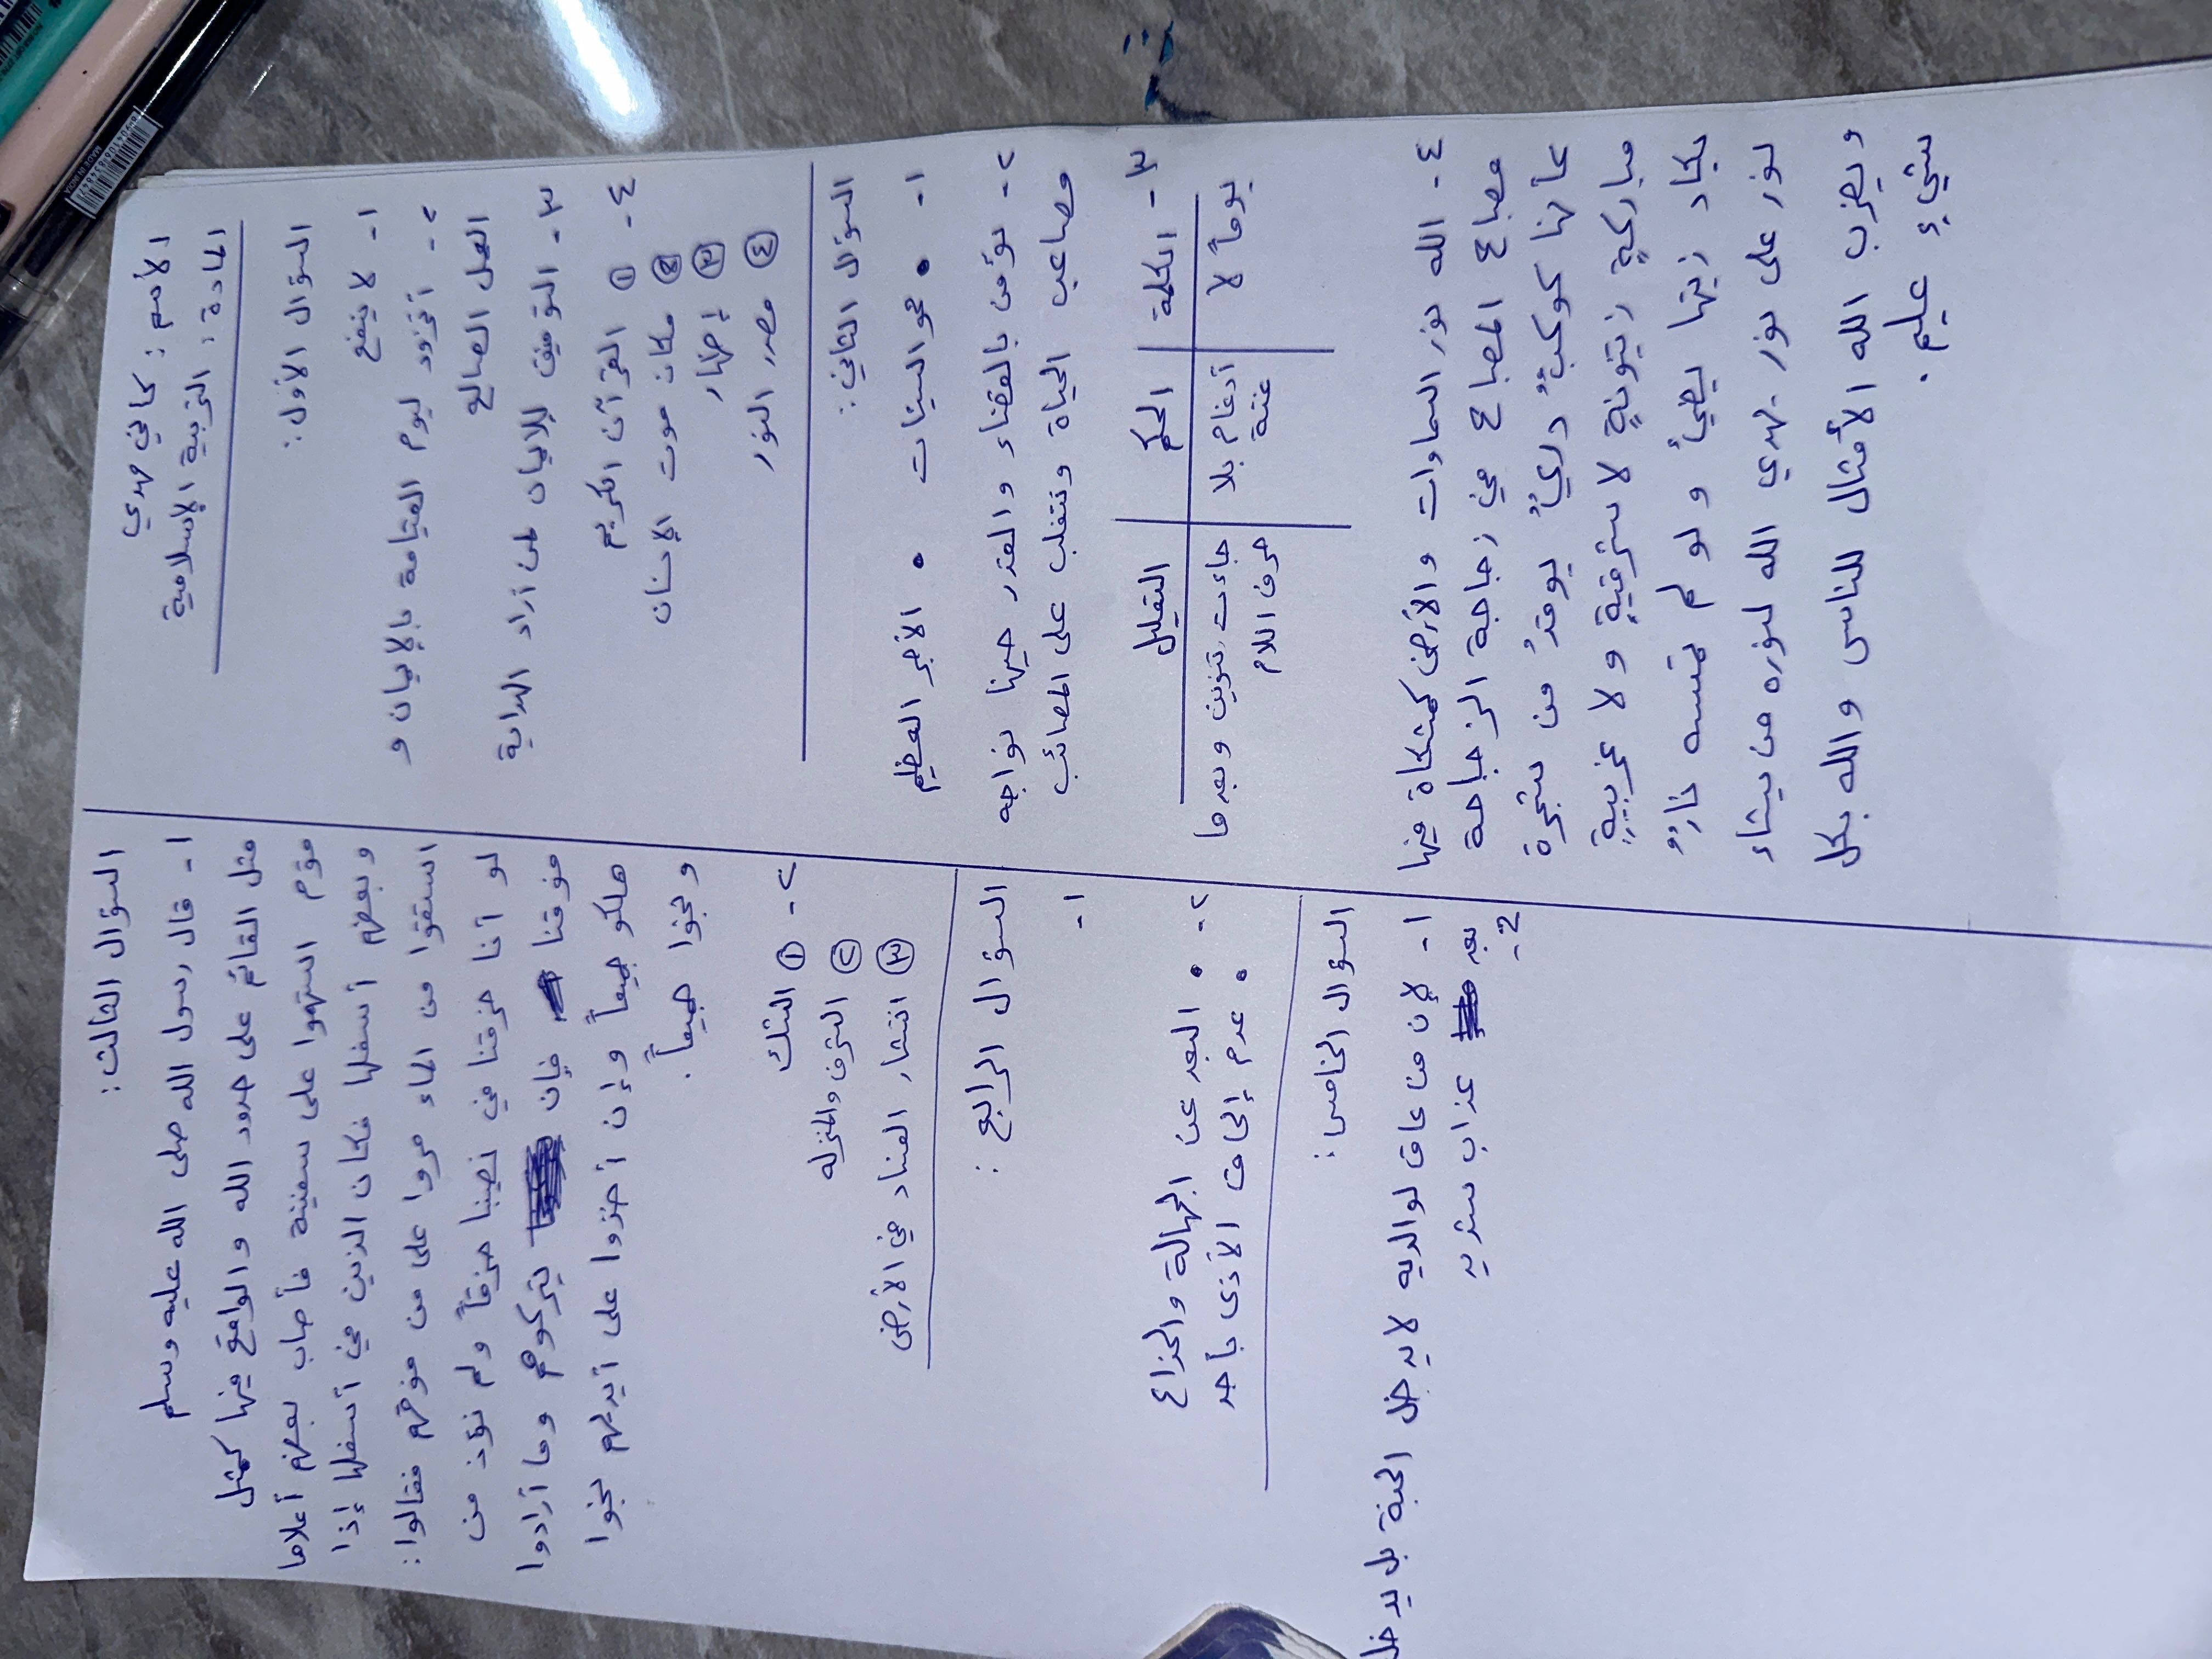 الأسم : كافي مهدي
المادة : التربية الإسلامية
السؤال الأول :
١- لا ينفع
٢- أتزود ليوم القيامة بالإيمان و
العمل الصالح
٣- التوفيق للإيمان لمن أراد الهداية
٤- ① القرآن الكريم
② مكان موت الإنسان
③ إظهار
④ مصدر النور
السؤال الثاني :
١- • محو السيئات • الأجر العظيم
٢- نؤمن بالقضاء والقدر حينها نواجه
مصاعب الحياة ونتغلب على المصائب
٣- الكلمة الحكم التعليل
يوماً لا أدغام بلا جاءت تنوين وبعدها
غنة حرف اللام
٤- الله نور السماوات والأرض كمشكاة فيها
مصباح المصباح في زجاجة الزجاجة
كأنها كوكبٌ دريٌ يوقدُ من شجرة
مباركةٍ زيتونةٍ لا شرقيةٍ ولا غربيةٍ
يكاد زيتها يضيءُ ولو لم تمسسه نارٌ
نور على نور يهدي الله لنوره من يشاء
ويضرب الله الأمثال للناس والله بكل
شيءٍ عليم .
السؤال الثالث :
١- قال رسول الله صلى الله عليه وسلم
مثل القائم على حدود الله والواقع فيها كمثل
قوم استهموا على سفينة فأصاب بعضهم أعلاها
وبعضهم أسفلها فكان الذين في أسفلها إذا
استقوا من الماء مروا على من فوقهم فقالوا :
لو أنا خرقنا في نصيبنا خرقاً ولم نؤذ من
فوقنا فإن يتركوهم وما أرادوا
هلكو جميعاً وإن أخذوا على أيديهم نجوا
ونجوا جميعاً .
٢- ① الشك
② الترف والمنزله
③ انتشار الفساد في الأرض
السؤال الرابع :
١-
٢- • البعد عن الجهالة والخداع
• عدم إلحاق الأذى بأحد
السؤال الخامس :
١- لإن من عاق لوالديه لا يدخل الجنة بل يدخل
بعد عذاب شديد
2-